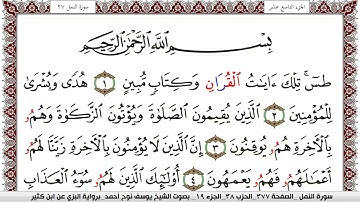 الجزء التاسع عشر سورة النمل ٢٧
بِسْمِ اللَّهِ الرَّحْمَٰنِ الرَّحِيمِ
طسٓ ۚ تِلْكَ ءَايَٰتُ الْقُرَانِ وَكِتَابٍ مُّبِينٍ ١ هُدًى وَبُشْرَىٰ
لِلْمُؤْمِنِينَ ٢ الَّذِينَ يُقِيمُونَ الصَّلَوٰةَ وَيُؤْتُونَ الزَّكَوٰةَ وَهُمُۥ
بِالْآخِرَةِ هُمُۥ يُوقِنُونَ ٣ إِنَّ الَّذِينَ لَا يُؤْمِنُونَ بِالْآخِرَةِ زَيَّنَّا لَهُمُۥ
أَعْمَٰلَهُمُۥ فَهُمُۥ يَعْمَهُونَ ٤ أُو۟لَٰٓئِكَ الَّذِينَ لَهُمُۥ سُوٓءُ الْعَذَابِ
سورة النمل _ الصفحة ٣٧٧ _ الحزب ٣٨ _ الجزء ١٩ _ بصوت الشيخ يوسف نوح احمد _ برواية البزي عن ابن كثير